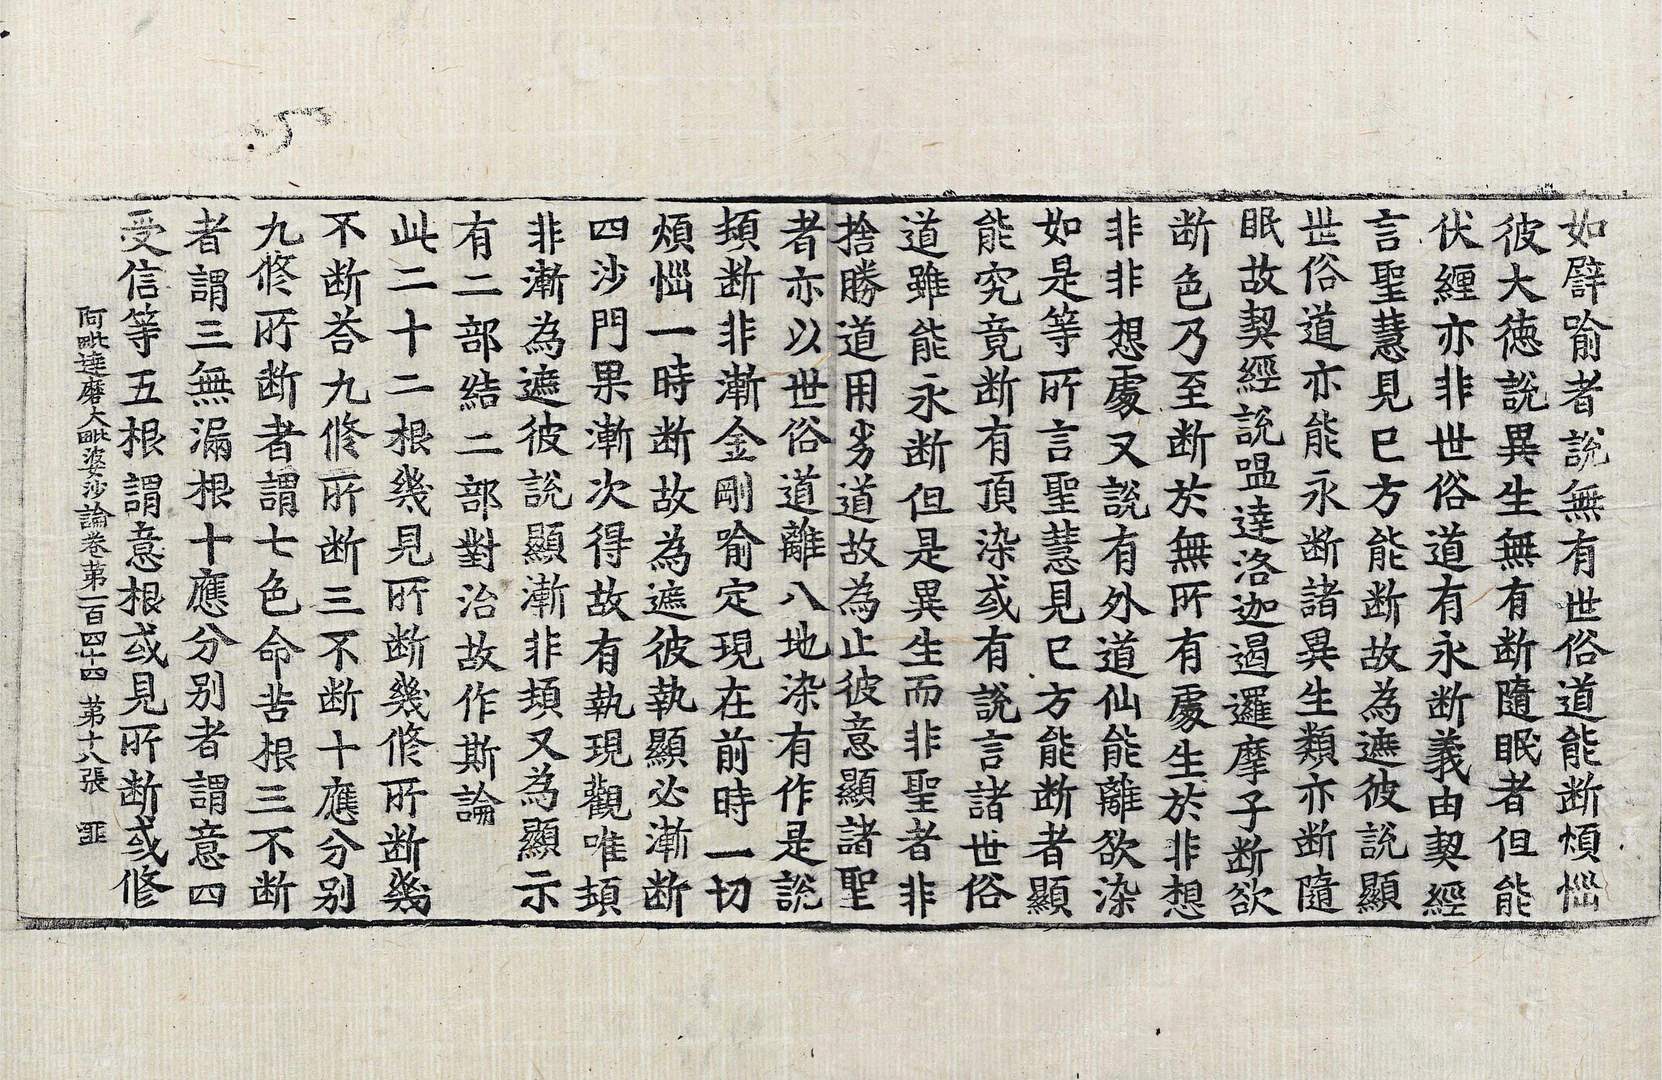 如譬喻者說無有世俗道能断煩惱
彼大徳說異生無有断隨眠者但能
伏纒亦非世俗道有永断義由契經
言聖慧見已方能断故為遮彼說顯
世俗道亦能永断諸異生類亦断隨
眠故契經說嗢達洛迦遏邏摩子断欲
断色乃至断於無所有處生於非想
非非想處又說有外道仙能離欲染
如是等所言聖慧見已方能断者顯
能究竟断有頂染或有說言諸世俗
道雖能永断但是異生而非聖者非
捨勝道用劣道故為止彼意顯諸聖
者亦以世俗道離八地染有作是說
頓断非漸金剛喻定現在前時一切
煩惱一時断故為遮彼執顯必漸断
四沙門果漸次得故有執現觀唯頓
非漸為遮彼說顯漸非頓又為顯示
有二部結二部對治故作斯論
此二十二根幾見所断幾修所断幾
不断荅九修所断三不断十應分別
九修所断者謂七色命苦根三不断
者謂三無漏根十應分別者謂意四
受信等五根謂意根或見所断或修
阿毗達磨大毗婆沙論卷第一百四十四 第十八張